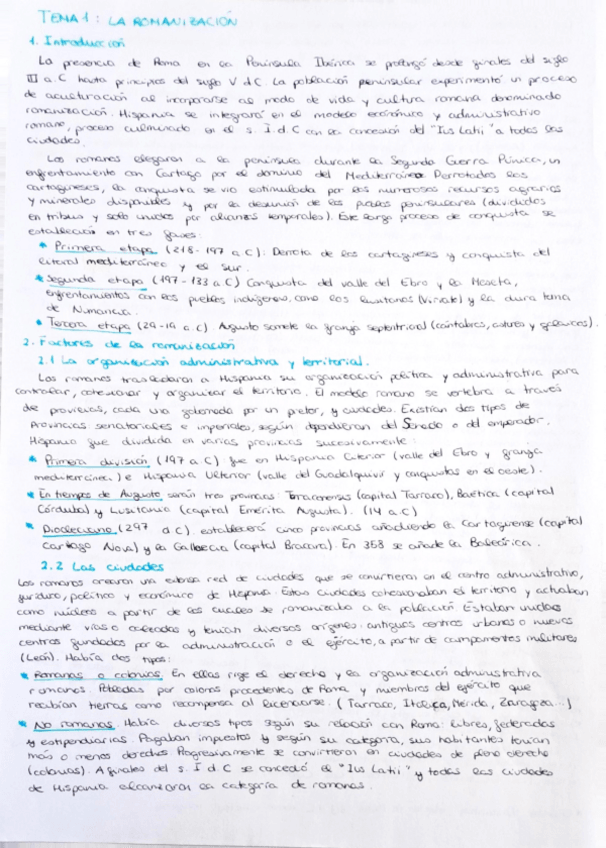 TEMA 1: LA ROMANIZACIÓN
1. Introducción
La presencia de Roma en la Península Ibérica se prolongó desde finales del siglo
III a.C hasta principios del siglo V d.C. La población peninsular experimentó un proceso
de aculturación al incorporarse al modo de vida y cultura romana denominado
romanización. Hispania se integrará en el modelo económico y administrativo
romano, proceso culminado en el s. I d.C con la concesión del "Ius Latii" a todas las
ciudades.
Los romanos llegaron a la península durante la Segunda Guerra Púnica, un
enfrentamiento con Cartago por el dominio del Mediterráneo. Derrotados los
cartagineses, la conquista se vio estimulada por los numerosos recursos agrarios
y minerales disponibles y por la desunión de los pueblos peninsulares (divididos
en tribus y solo unidos por alianzas temporales). Este largo proceso de conquista se
estableció en tres fases:
* Primera etapa (218-197 a.C): Derrota de los cartagineses y conquista del
litoral mediterráneo y el sur.
* Segunda etapa (197-133 a.C) Conquista del valle del Ebro y la Meseta,
enfrentamientos con los pueblos indígenas, como los lusitanos (Viriato) y la dura toma
de Numancia.
* Tercera etapa (29-19 a.C) Augusto somete la franja septentrional (cántabros, astures y galaicos).
2. Factores de la romanización
2.1 La organización administrativa y territorial.
Los romanos trasladaron a Hispania su organización política y administrativa para
controlar, cohesionar y organizar el territorio. El modelo romano se vertebra a través
de provincias, cada una gobernada por un pretor, y ciudades. Existían dos tipos de
Provincias senatoriales e imperiales, según dependieran del Senado o del emperador.
Hispania fue dividida en varias provincias sucesivamente:
* Primera división (197 a.C) fue en Hispania Citerior (valle del Ebro y franja
mediterránea) e Hispania Ulterior (valle del Guadalquivir y conquistas en el oeste).
* En tiempos de Augusto serán tres provincias: Tarraconensis (capital Tarraco), Baetica (capital
Córduba) y Lusitania (capital Emerita Augusta). (14 a.C)
* Diocleciano (297 d.C). establecerá cinco provincias añadiendo la Cartaginense (capital
Cartago Nova) y la Gallaecia (capital Bracara). En 358 se añade la Baleárica.
2.2 Las ciudades
Los romanos crearon una extensa red de ciudades que se convirtieron en el centro administrativo,
jurídico, político y económico de Hispania. Estas ciudades cohesionaban el territorio y actuaban
como núcleos a partir de los cuales se romanizaba a la población. Estaban unidas
mediante vías o calzadas y tenían diversos orígenes: antiguos centros urbanos o nuevos
centros fundados por la administración o el ejército, a partir de campamentos militares
(León). Había dos tipos:
* Romanas o colonias. En ellas rige el derecho y la organización administrativa
romanos. Pobladas por colonos procedentes de Roma y miembros del ejército que
recibían tierras como recompensa al licenciarse. (Tarraco, Itálica, Mérida, Zaragoza...)
* No romanas. Había diversos tipos según su relación con Roma: libres, federadas
y estipendiarias. Pagaban impuestos y según su categoría, sus habitantes tenían
más o menos derechos. Progresivamente se convirtieron en ciudades de pleno derecho
(colonias). A finales del s. I d.C se concedió el "Ius Latii" y todas las ciudades
de Hispania alcanzaron la categoría de romanas.